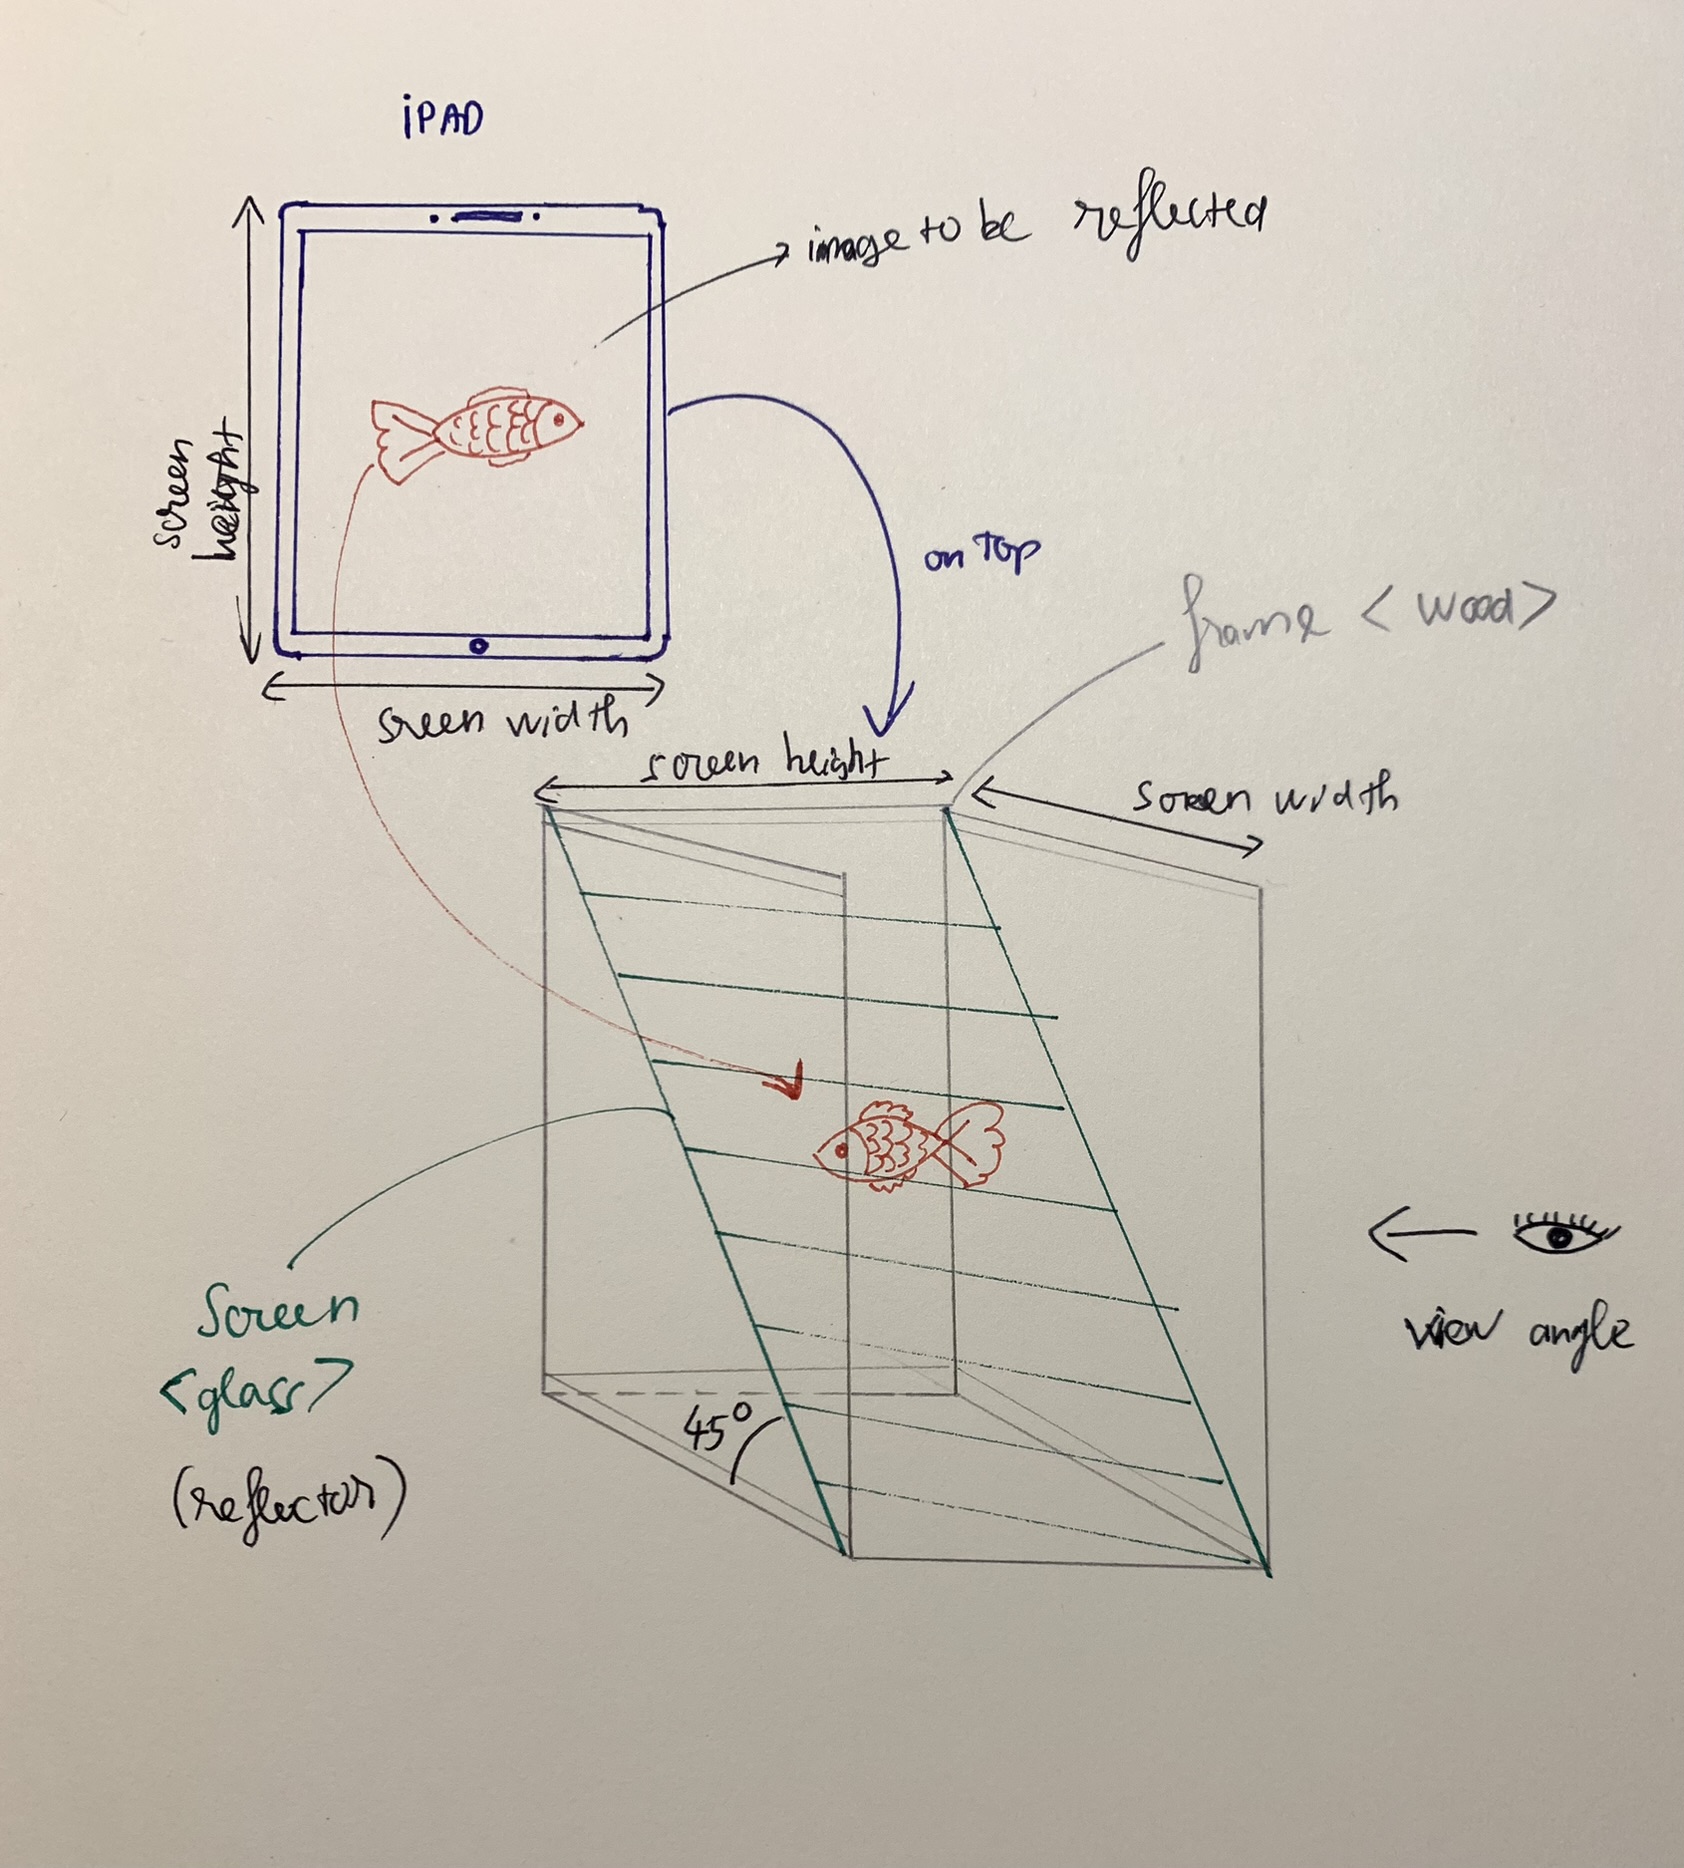 iPAD
image to be reflected
screen
height
sreen width
on top
frame <wood>
screen height
screen width
Screen
<glass>
(reflector)
45°
view angle